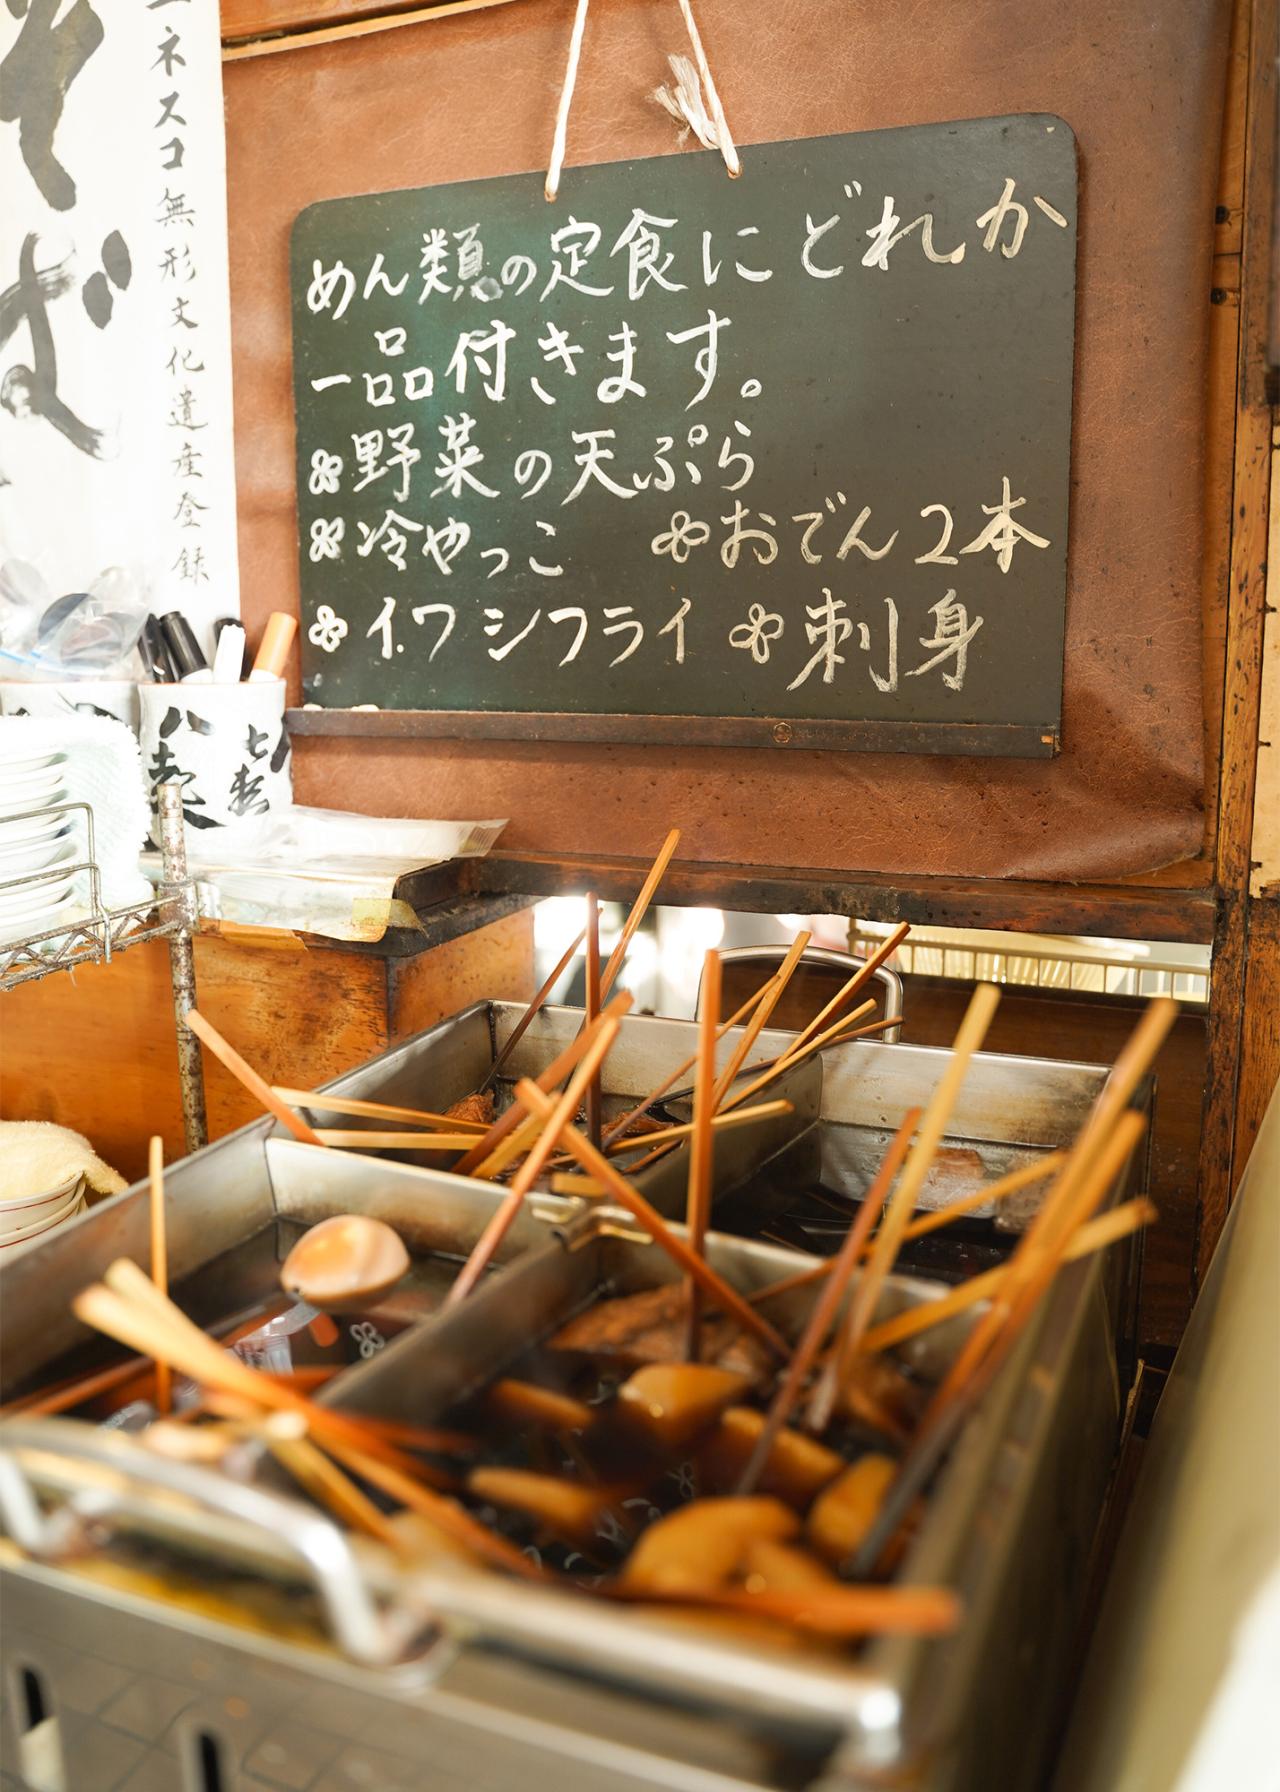 そば
ユネスコ無形文化遺産登録
めん類の定食にどれか
一品付きます。
野菜の天ぷら
冷やっこ おでん2本
イワシフライ 刺身